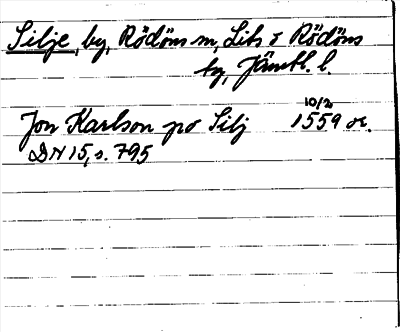 Silje, by, Rödöns sn, Lits o Rödöns
tg, Jämtl. l.
10/2
Jon Karlson po Silj 1559 or.
DN 15, s. 795